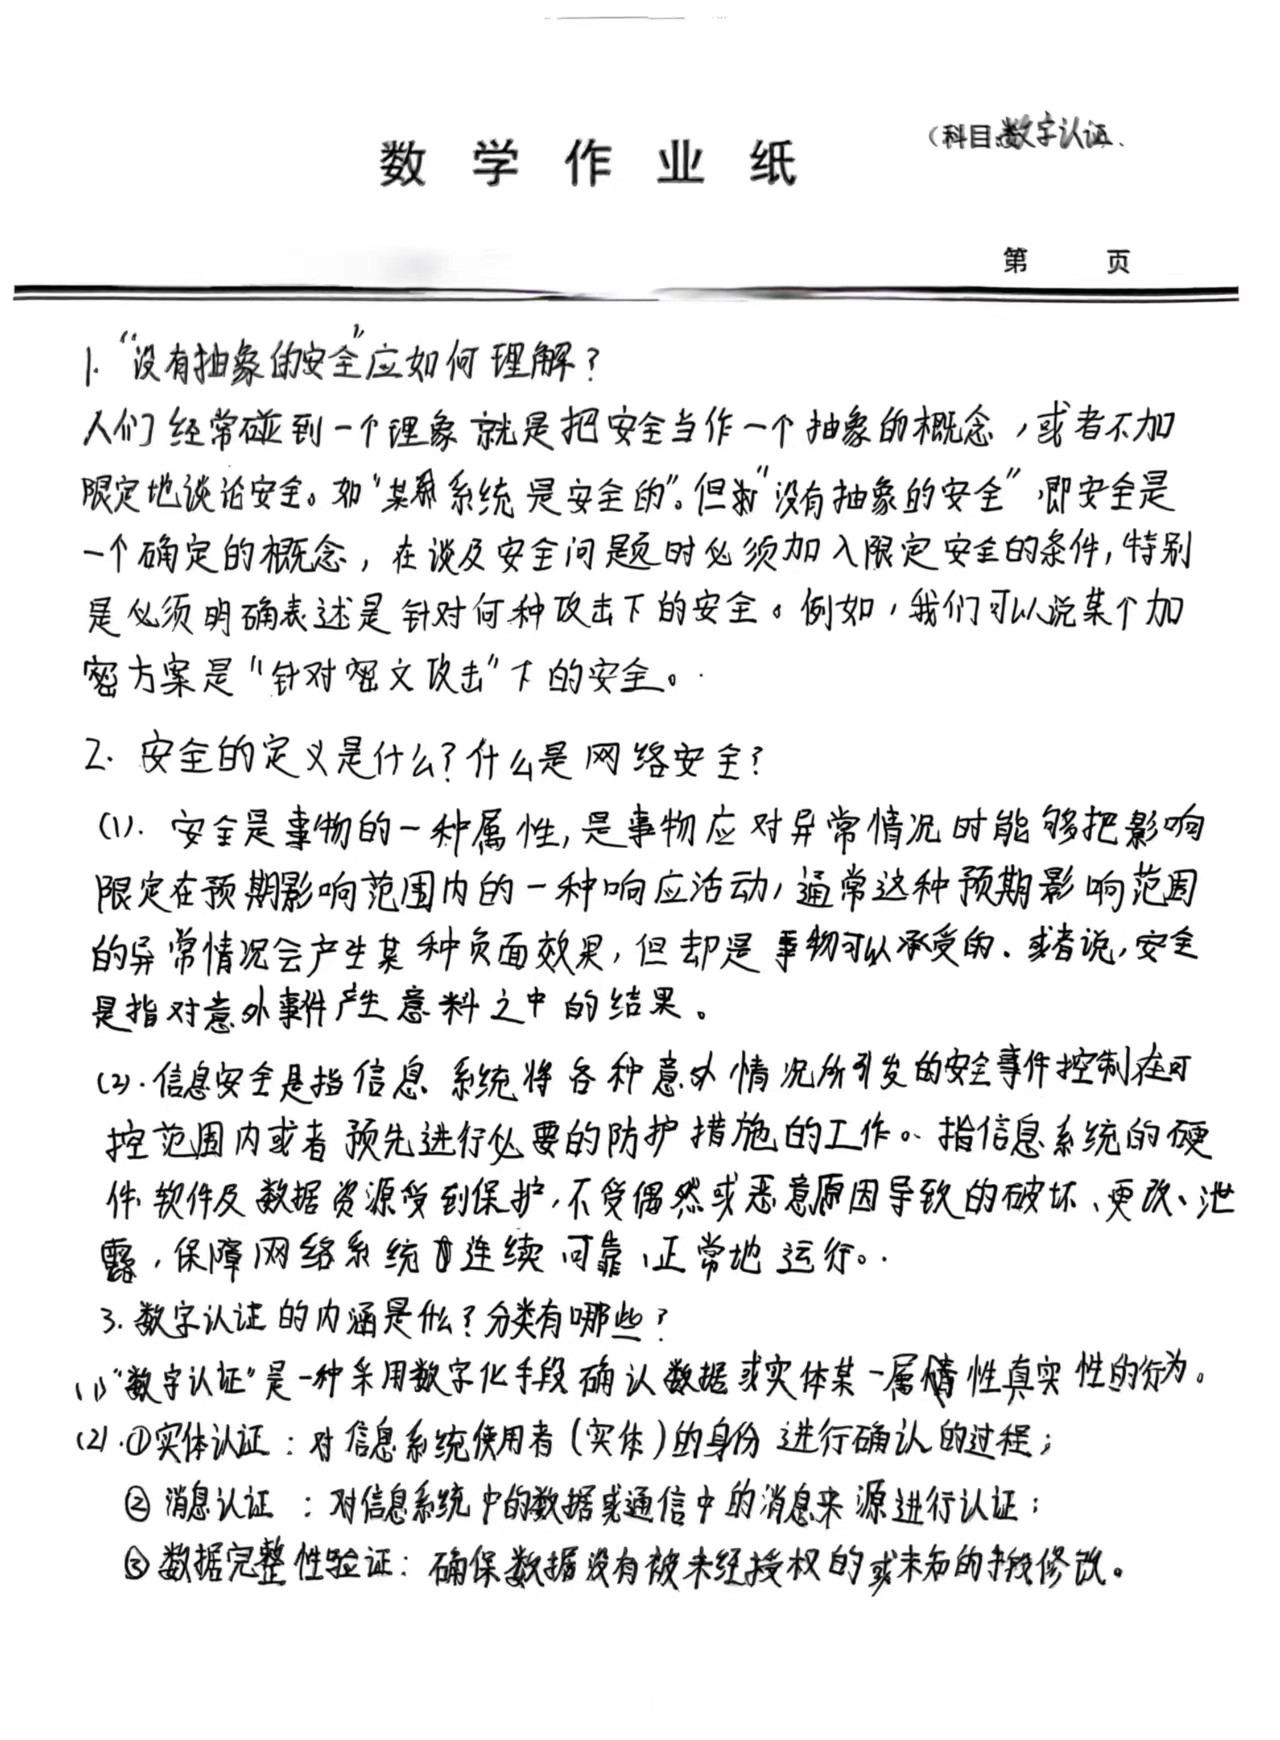 (科目:数字认证
数学作业纸
第 页
1. “没有抽象的安全”应如何理解?
人们经常碰到一个现象就是把安全当作一个抽象的概念,或者不加
限定地谈论安全。如“某 系统是安全的”。但 “没有抽象的安全”,即安全是
一个确定的概念,在谈及安全问题时必须加入限定安全的条件,特别
是必须明确表述是针对何种攻击下的安全。例如,我们可以说某个加
密方案是“针对密文攻击”下的安全。
2. 安全的定义是什么?什么是网络安全?
(1). 安全是事物的一种属性,是事物应对异常情况时能够把影响
限定在预期影响范围内的一种响应活动,通常这种预期影响范围
的异常情况会产生某种负面效果,但却是事物可以承受的.或者说,安全
是指对意外事件产生意料之中的结果。
(2). 信息安全是指信息系统将各种意外情况所引发的安全事件控制在可
控范围内或者预先进行必要的防护措施的工作。指信息系统的硬
件、软件及数据资源受到保护,不受偶然或恶意原因导致的破坏、更改、泄
露,保障网络系统 连续、可靠、正常地运行。
3. 数字认证的内涵是什么?分类有哪些?
(1)“数字认证”是一种采用数字化手段确认数据或实体某一属 性真实性的行为。
(2). ①实体认证:对信息系统使用者(实体)的身份进行确认的过程;
② 消息认证:对信息系统中的数据或通信中的消息来源进行认证;
③ 数据完整性验证:确保数据没有被未经授权的或未知的手段修改。